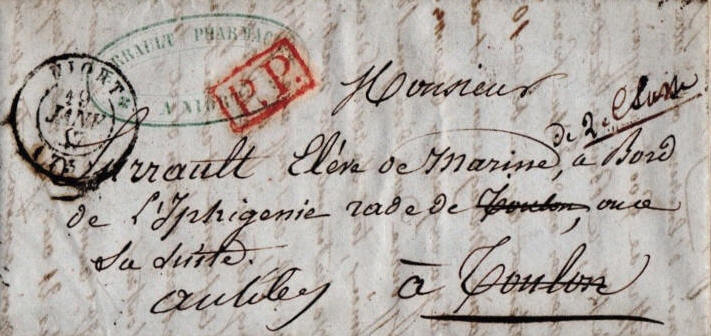 RRAULT PHARMAC
A NIORT
P.P.
NIORT
19
JANV
47
(75)
Monsieur
de 2e Classe
Larrault Elève de Marine, à Bord
de l'Iphigenie rade de Toulon, ou a
Sa Suite.
à Toulon